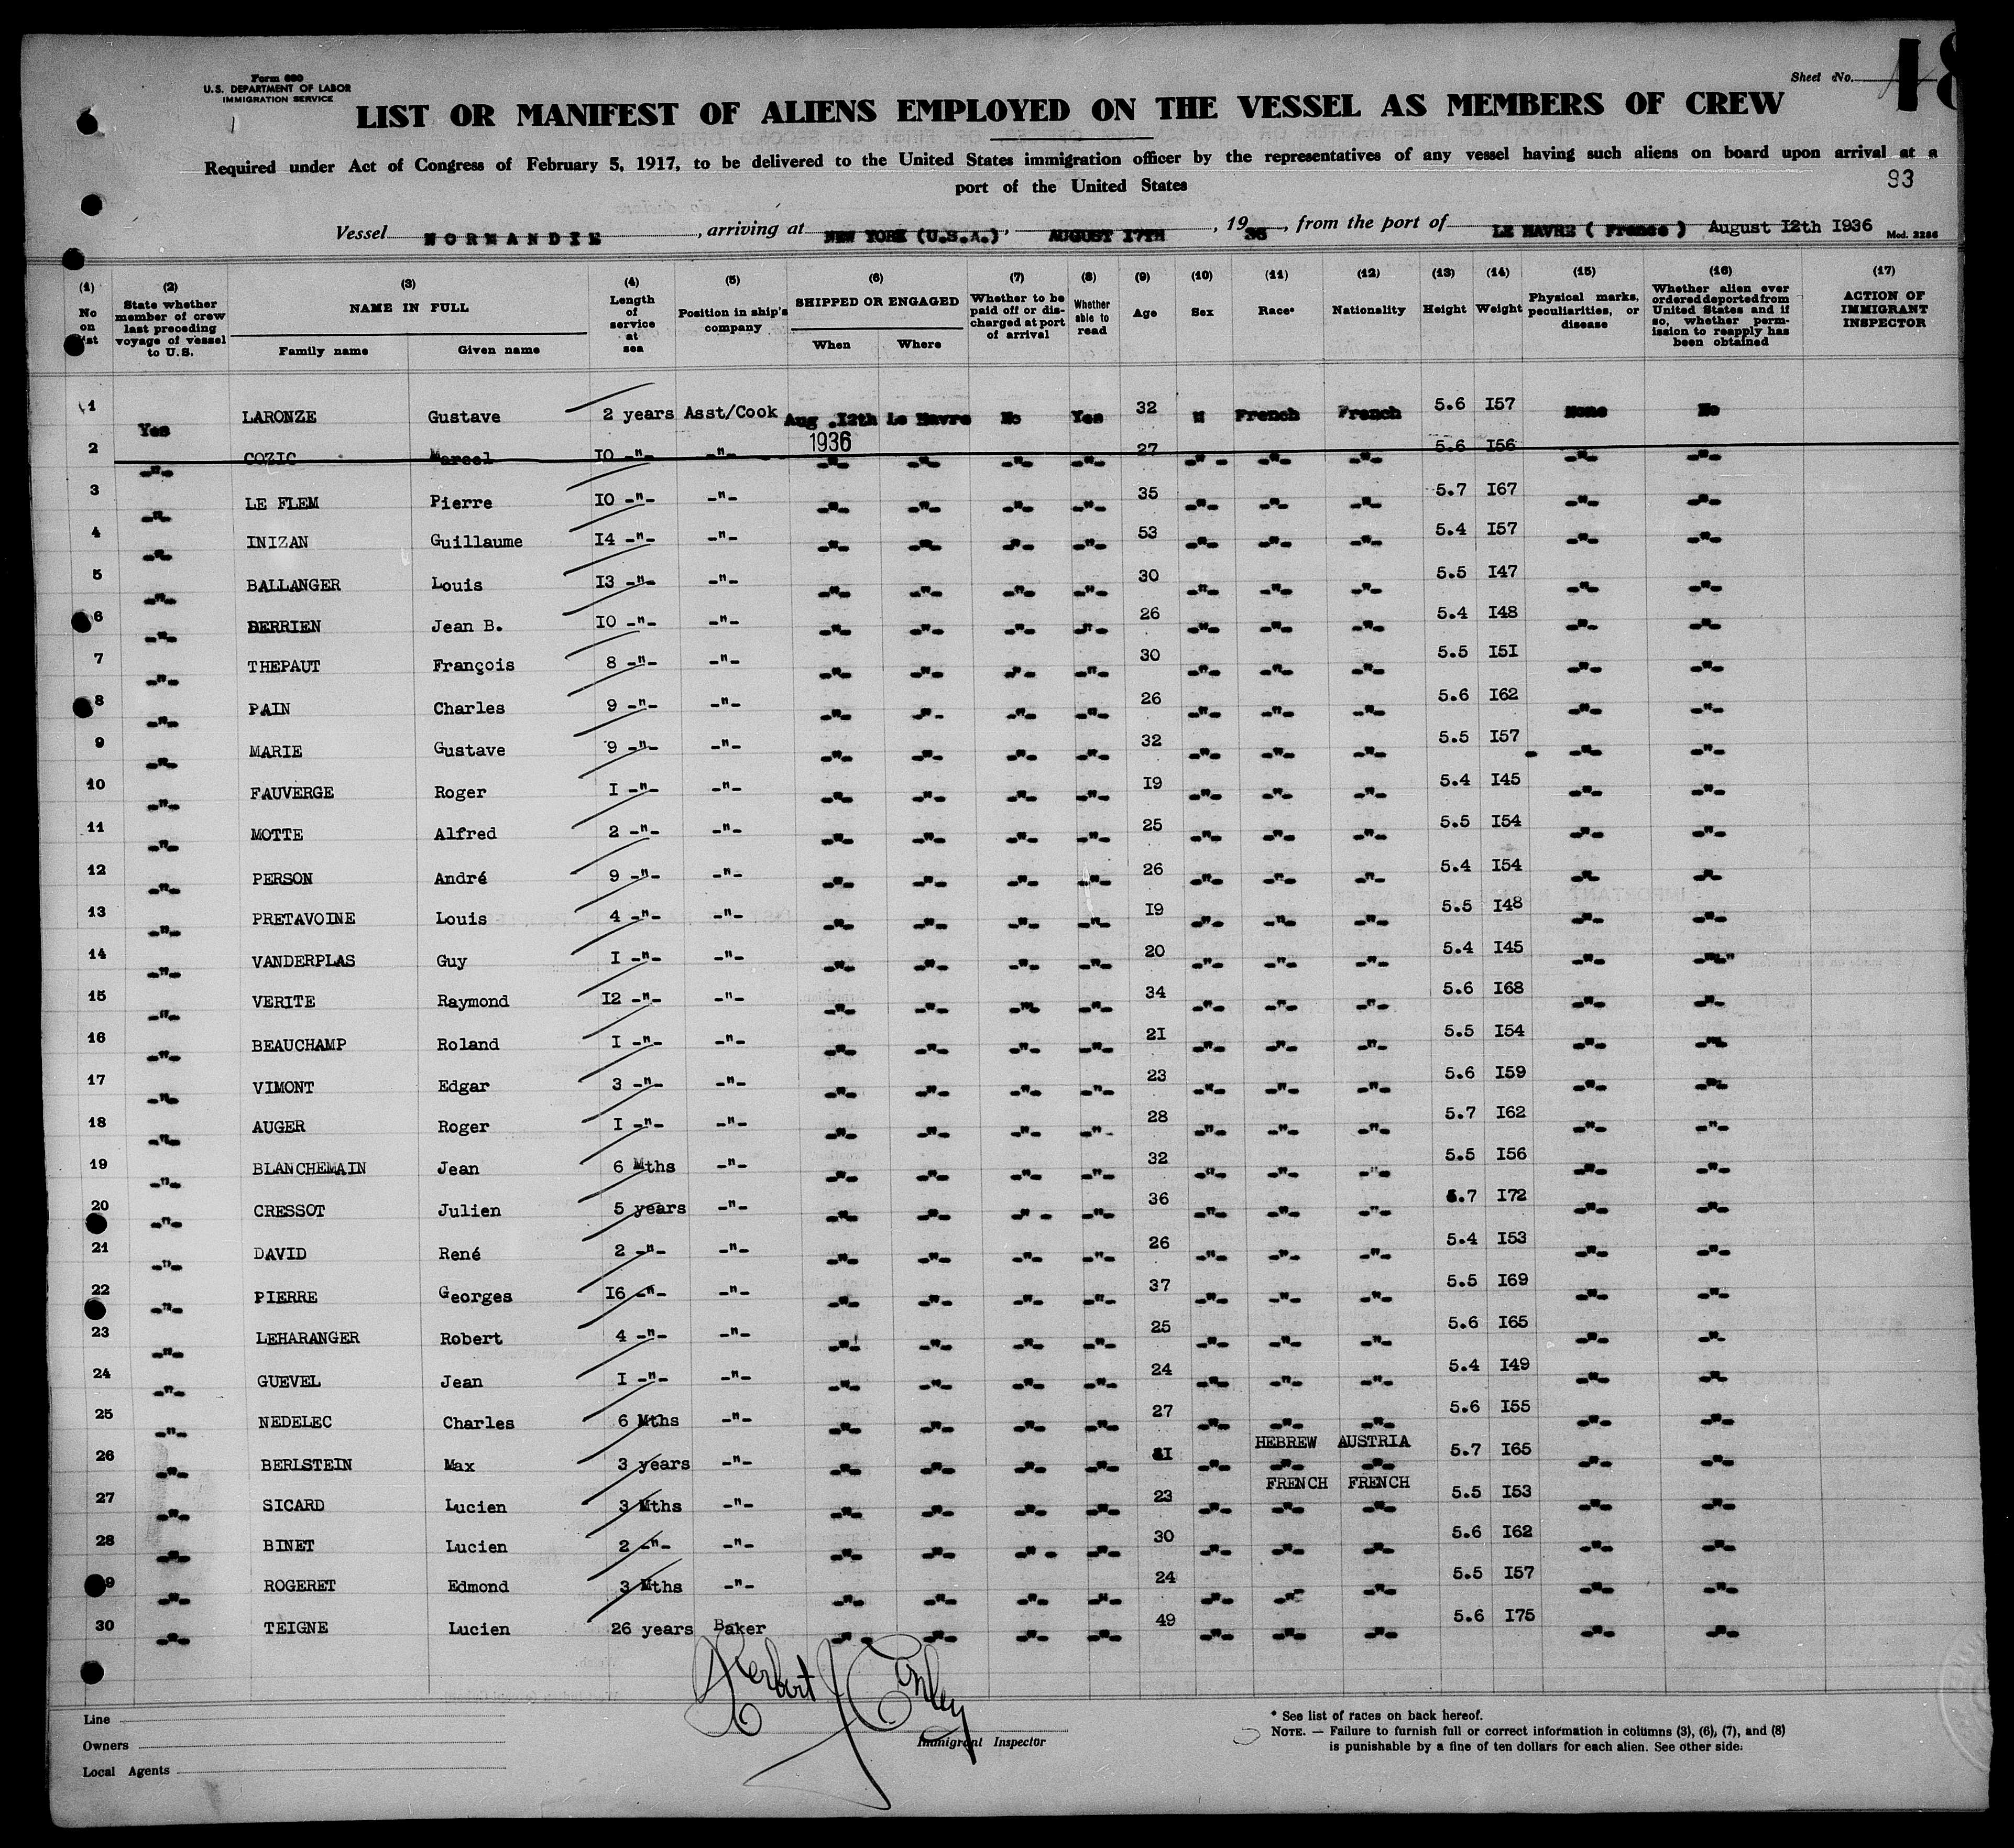 Form 680
U.S. DEPARTMENT OF LABOR
IMMIGRATION SERVICE
Sheet No. 18
LIST OR MANIFEST OF ALIENS EMPLOYED ON THE VESSEL AS MEMBERS OF CREW
Required under Act of Congress of February 5, 1917, to be delivered to the United States immigration officer by the representatives of any vessel having such aliens on board upon arrival at a
port of the United States
93
Vessel NORMANDIE, arriving at NEW YORK (U.S.A.), AUGUST 17TH, 1936, from the port of LE HAVRE ( France ) August I2th I936 Mod. 2286
(1) (2) (3) (4) (5) (6) (7) (8) (9) (10) (11) (12) (13) (14) (15) (16) (17)
No on list | State whether member of crew last preceding voyage of vessel to U.S. | NAME IN FULL Family name Given name | Length of service at sea | Position in ship's company | SHIPPED OR ENGAGED When Where | Whether to be paid off or discharged at port of arrival | Whether able to read | Age | Sex | Race* | Nationality | Height | Weight | Physical marks, peculiarities, or disease | Whether alien ever ordered deported from United States and if so, whether permission to reapply has been obtained | ACTION OF IMMIGRANT INSPECTOR
1 Yes LARONZE Gustave 2 years Asst/Cook Aug .I2th 1936 Le Havre No Yes 32 M French French 5.6 I57 None No
2 -"- COZIC Marcel IO -"- -"- -"- -"- -"- -"- 27 -"- -"- -"- 5.6 I56 -"- -"-
3 -"- LE FLEM Pierre IO -"- -"- -"- -"- -"- -"- 35 -"- -"- -"- 5.7 I67 -"- -"-
4 -"- INIZAN Guillaume I4 -"- -"- -"- -"- -"- -"- 53 -"- -"- -"- 5.4 I57 -"- -"-
5 -"- BALLANGER Louis I3 -"- -"- -"- -"- -"- -"- 30 -"- -"- -"- 5.5 I47 -"- -"-
6 -"- DERRIEN Jean B. IO -"- -"- -"- -"- -"- -"- 26 -"- -"- -"- 5.4 I48 -"- -"-
7 -"- THEPAUT François 8 -"- -"- -"- -"- -"- -"- 30 -"- -"- -"- 5.5 I5I -"- -"-
8 -"- PAIN Charles 9 -"- -"- -"- -"- -"- -"- 26 -"- -"- -"- 5.6 I62 -"- -"-
9 -"- MARIE Gustave 9 -"- -"- -"- -"- -"- -"- 32 -"- -"- -"- 5.5 I57 -"- -"-
10 -"- FAUVERGE Roger I -"- -"- -"- -"- -"- -"- I9 -"- -"- -"- 5.4 I45 -"- -"-
11 -"- MOTTE Alfred 2 -"- -"- -"- -"- -"- -"- 25 -"- -"- -"- 5.5 I54 -"- -"-
12 -"- PERSON André 9 -"- -"- -"- -"- -"- -"- 26 -"- -"- -"- 5.4 I54 -"- -"-
13 -"- PRETAVOINE Louis 4 -"- -"- -"- -"- -"- -"- I9 -"- -"- -"- 5.5 I48 -"- -"-
14 -"- VANDERPLAS Guy I -"- -"- -"- -"- -"- -"- 20 -"- -"- -"- 5.4 I45 -"- -"-
15 -"- VERITE Raymond I2 -"- -"- -"- -"- -"- -"- 34 -"- -"- -"- 5.6 I68 -"- -"-
16 -"- BEAUCHAMP Roland I -"- -"- -"- -"- -"- -"- 2I -"- -"- -"- 5.5 I54 -"- -"-
17 -"- VIMONT Edgar 3 -"- -"- -"- -"- -"- -"- 23 -"- -"- -"- 5.6 I59 -"- -"-
18 -"- AUGER Roger I -"- -"- -"- -"- -"- -"- 28 -"- -"- -"- 5.7 I62 -"- -"-
19 -"- BLANCHEMAIN Jean 6 Mths -"- -"- -"- -"- -"- 32 -"- -"- -"- 5.5 I56 -"- -"-
20 -"- CRESSOT Julien 5 years -"- -"- -"- -"- -"- 36 -"- -"- -"- 5.7 I72 -"- -"-
21 -"- DAVID René 2 -"- -"- -"- -"- -"- -"- 26 -"- -"- -"- 5.4 I53 -"- -"-
22 -"- PIERRE Georges I6 -"- -"- -"- -"- -"- -"- 37 -"- -"- -"- 5.5 I69 -"- -"-
23 -"- LEHARANGER Robert 4 -"- -"- -"- -"- -"- -"- 25 -"- -"- -"- 5.6 I65 -"- -"-
24 -"- GUEVEL Jean I -"- -"- -"- -"- -"- -"- 24 -"- -"- -"- 5.4 I49 -"- -"-
25 -"- NEDELEC Charles 6 Mths -"- -"- -"- -"- -"- 27 -"- -"- -"- 5.6 I55 -"- -"-
26 -"- BERLSTEIN Max 3 years -"- -"- -"- -"- -"- -"- HEBREW AUSTRIA 5.7 I65 -"- -"-
27 -"- SICARD Lucien 3 Mths -"- -"- -"- -"- -"- 23 -"- FRENCH FRENCH 5.5 I53 -"- -"-
28 -"- BINET Lucien 2 -"- -"- -"- -"- -"- -"- 30 -"- -"- -"- 5.6 I62 -"- -"-
29 -"- ROGERET Edmond 3 Mths -"- -"- -"- -"- -"- 24 -"- -"- -"- 5.5 I57 -"- -"-
30 -"- TEIGNE Lucien 26 years Baker -"- -"- -"- -"- 49 -"- -"- -"- 5.6 I75 -"- -"-
Herbert J Conley
Immigrant Inspector
Line
Owners
Local Agents
* See list of races on back hereof.
NOTE. — Failure to furnish full or correct information in columns (3), (6), (7), and (8)
is punishable by a fine of ten dollars for each alien. See other side.